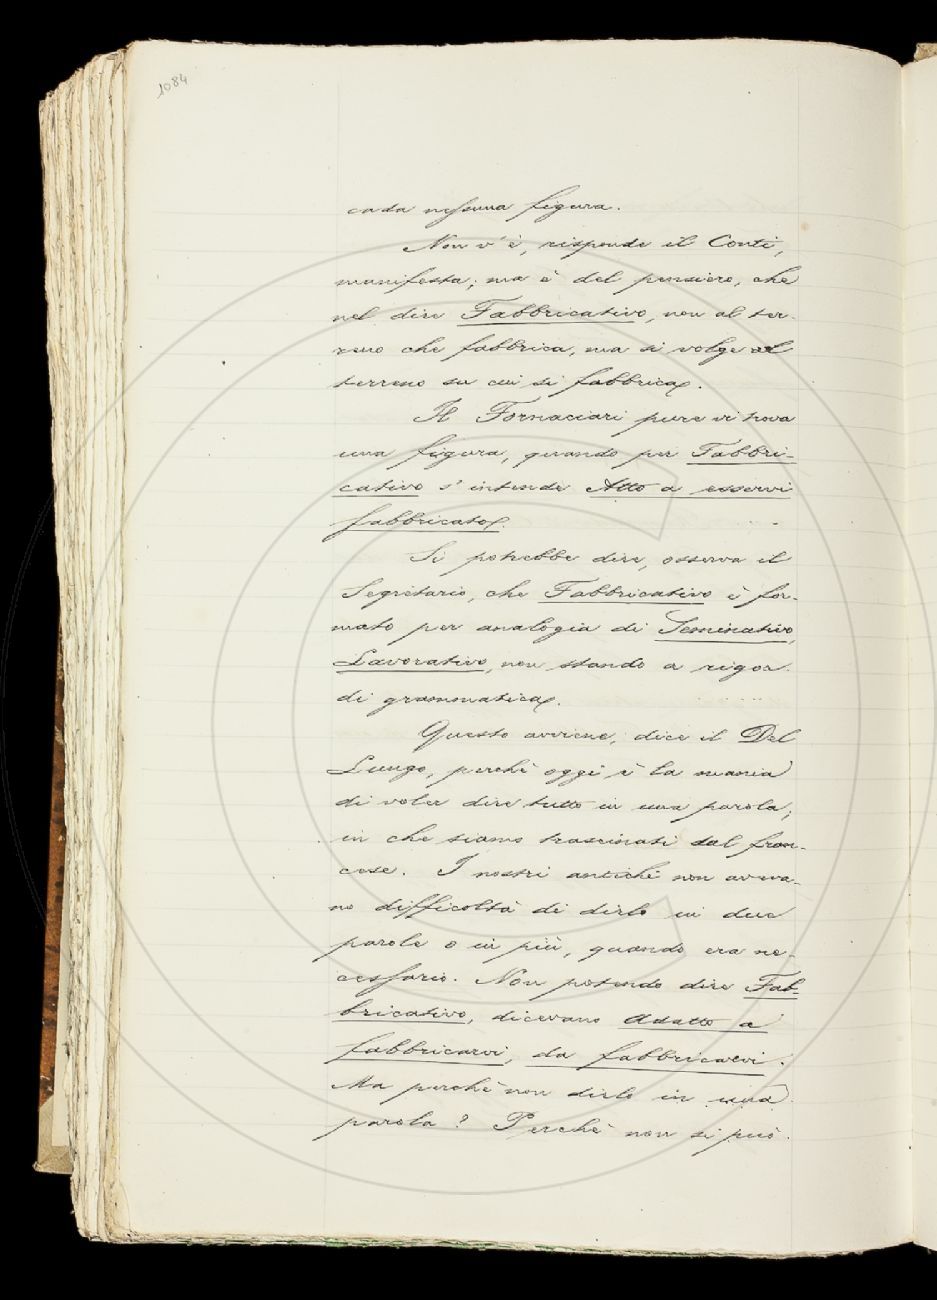 1084
cada nessuna figura.
Non v'è, risponde il Conti,
manifesta; ma è del pensiero, che
nel dire Fabbricativo, non al ter-
reno che fabbrica, ma si volge al
terreno su cui si fabbrica.
Il Fornaciari pure vi trova
una figura, quando per Fabbri-
cativo s'intende Atto a esservi
fabbricato.
Si potrebbe dire, osserva il
Segretario, che Fabbricativo è for-
mato per analogia di Seminativo,
Lavorativo, non stando a rigor
di grammatica.
Questo avviene, dice il Del
Lungo, perchè oggi è la mania
di voler dire tutto in una parola;
in che siamo trascinati dal fran-
cese. I nostri antichi non aveva-
no difficoltà di dirlo in due
parole o in più, quando era ne-
cessario. Non potendo dire Fab-
bricativo, dicevano Adatto a
fabbricarvi, da fabbricarvi.
Ma perchè non dirlo in una
parola? Perchè non si può.